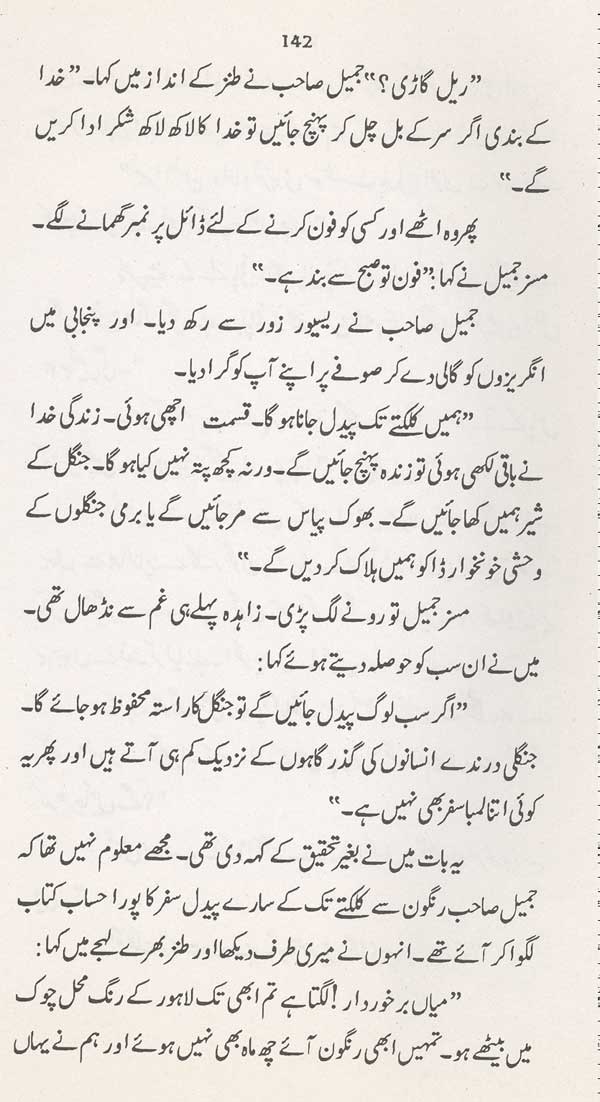 142
”ریل گاڑی؟“ جمیل صاحب نے طنز کے انداز میں کہا۔ ”خدا
کے بندی اگر سر کے بل چل کر پہنچ جائیں تو خدا کا لاکھ لاکھ شکر ادا کریں
گے۔“
پھر وہ اٹھے اور کسی کو فون کرنے کے لئے ڈائل پر نمبر گھمانے لگے۔
مسز جمیل نے کہا: ”فون تو صبح سے بند ہے۔“
جمیل صاحب نے ریسیور زور سے رکھ دیا۔ اور پنجابی میں
انگریزوں کو گالی دے کر صوفے پر اپنے آپ کو گرا دیا۔
”ہمیں کلکتے تک پیدل جانا ہو گا۔ قسمت اچھی ہوئی۔ زندگی خدا
نے باقی لکھی ہوئی تو زندہ پہنچ جائیں گے۔ ورنہ کچھ پتہ نہیں کیا ہو گا۔ جنگل کے
شیر ہمیں کھا جائیں گے۔ بھوک پیاس سے مر جائیں گے یا برمی جنگلوں کے
وحشی خونخوار ڈاکو ہمیں ہلاک کر دیں گے۔“
مسز جمیل تو رونے لگ پڑی۔ زاہدہ پہلے ہی غم سے نڈھال تھی۔
میں نے ان سب کو حوصلہ دیتے ہوئے کہا:
”اگر سب لوگ پیدل جائیں گے تو جنگل کا راستہ محفوظ ہو جائے گا۔
جنگلی درندے انسانوں کی گذر گاہوں کے نزدیک کم ہی آتے ہیں اور پھر یہ
کوئی اتنا لمبا سفر بھی نہیں ہے۔“
یہ بات میں نے بغیر تحقیق کے کہہ دی تھی۔ مجھے معلوم نہیں تھا کہ
جمیل صاحب رنگون سے کلکتے تک کے سارے پیدل سفر کا پورا حساب کتاب
لگوا کر آئے تھے۔ انہوں نے میری طرف دیکھا اور طنز بھرے لہجے میں کہا:
”میاں برخوردار! لگتا ہے تم ابھی تک لاہور کے رنگ محل چوک
میں بیٹھے ہو۔ تمہیں ابھی رنگون آئے چھ ماہ بھی نہیں ہوئے اور ہم نے یہاں